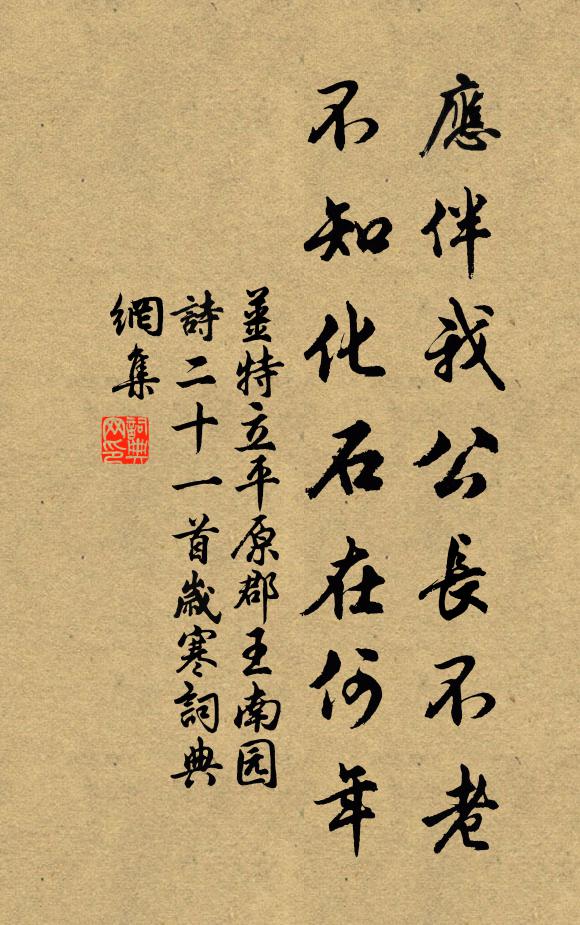 應伴我公長不老
不知化石在何年
姜特立平原郡王南园
詩二十一首歲寒詞典
網集
詞典
网印